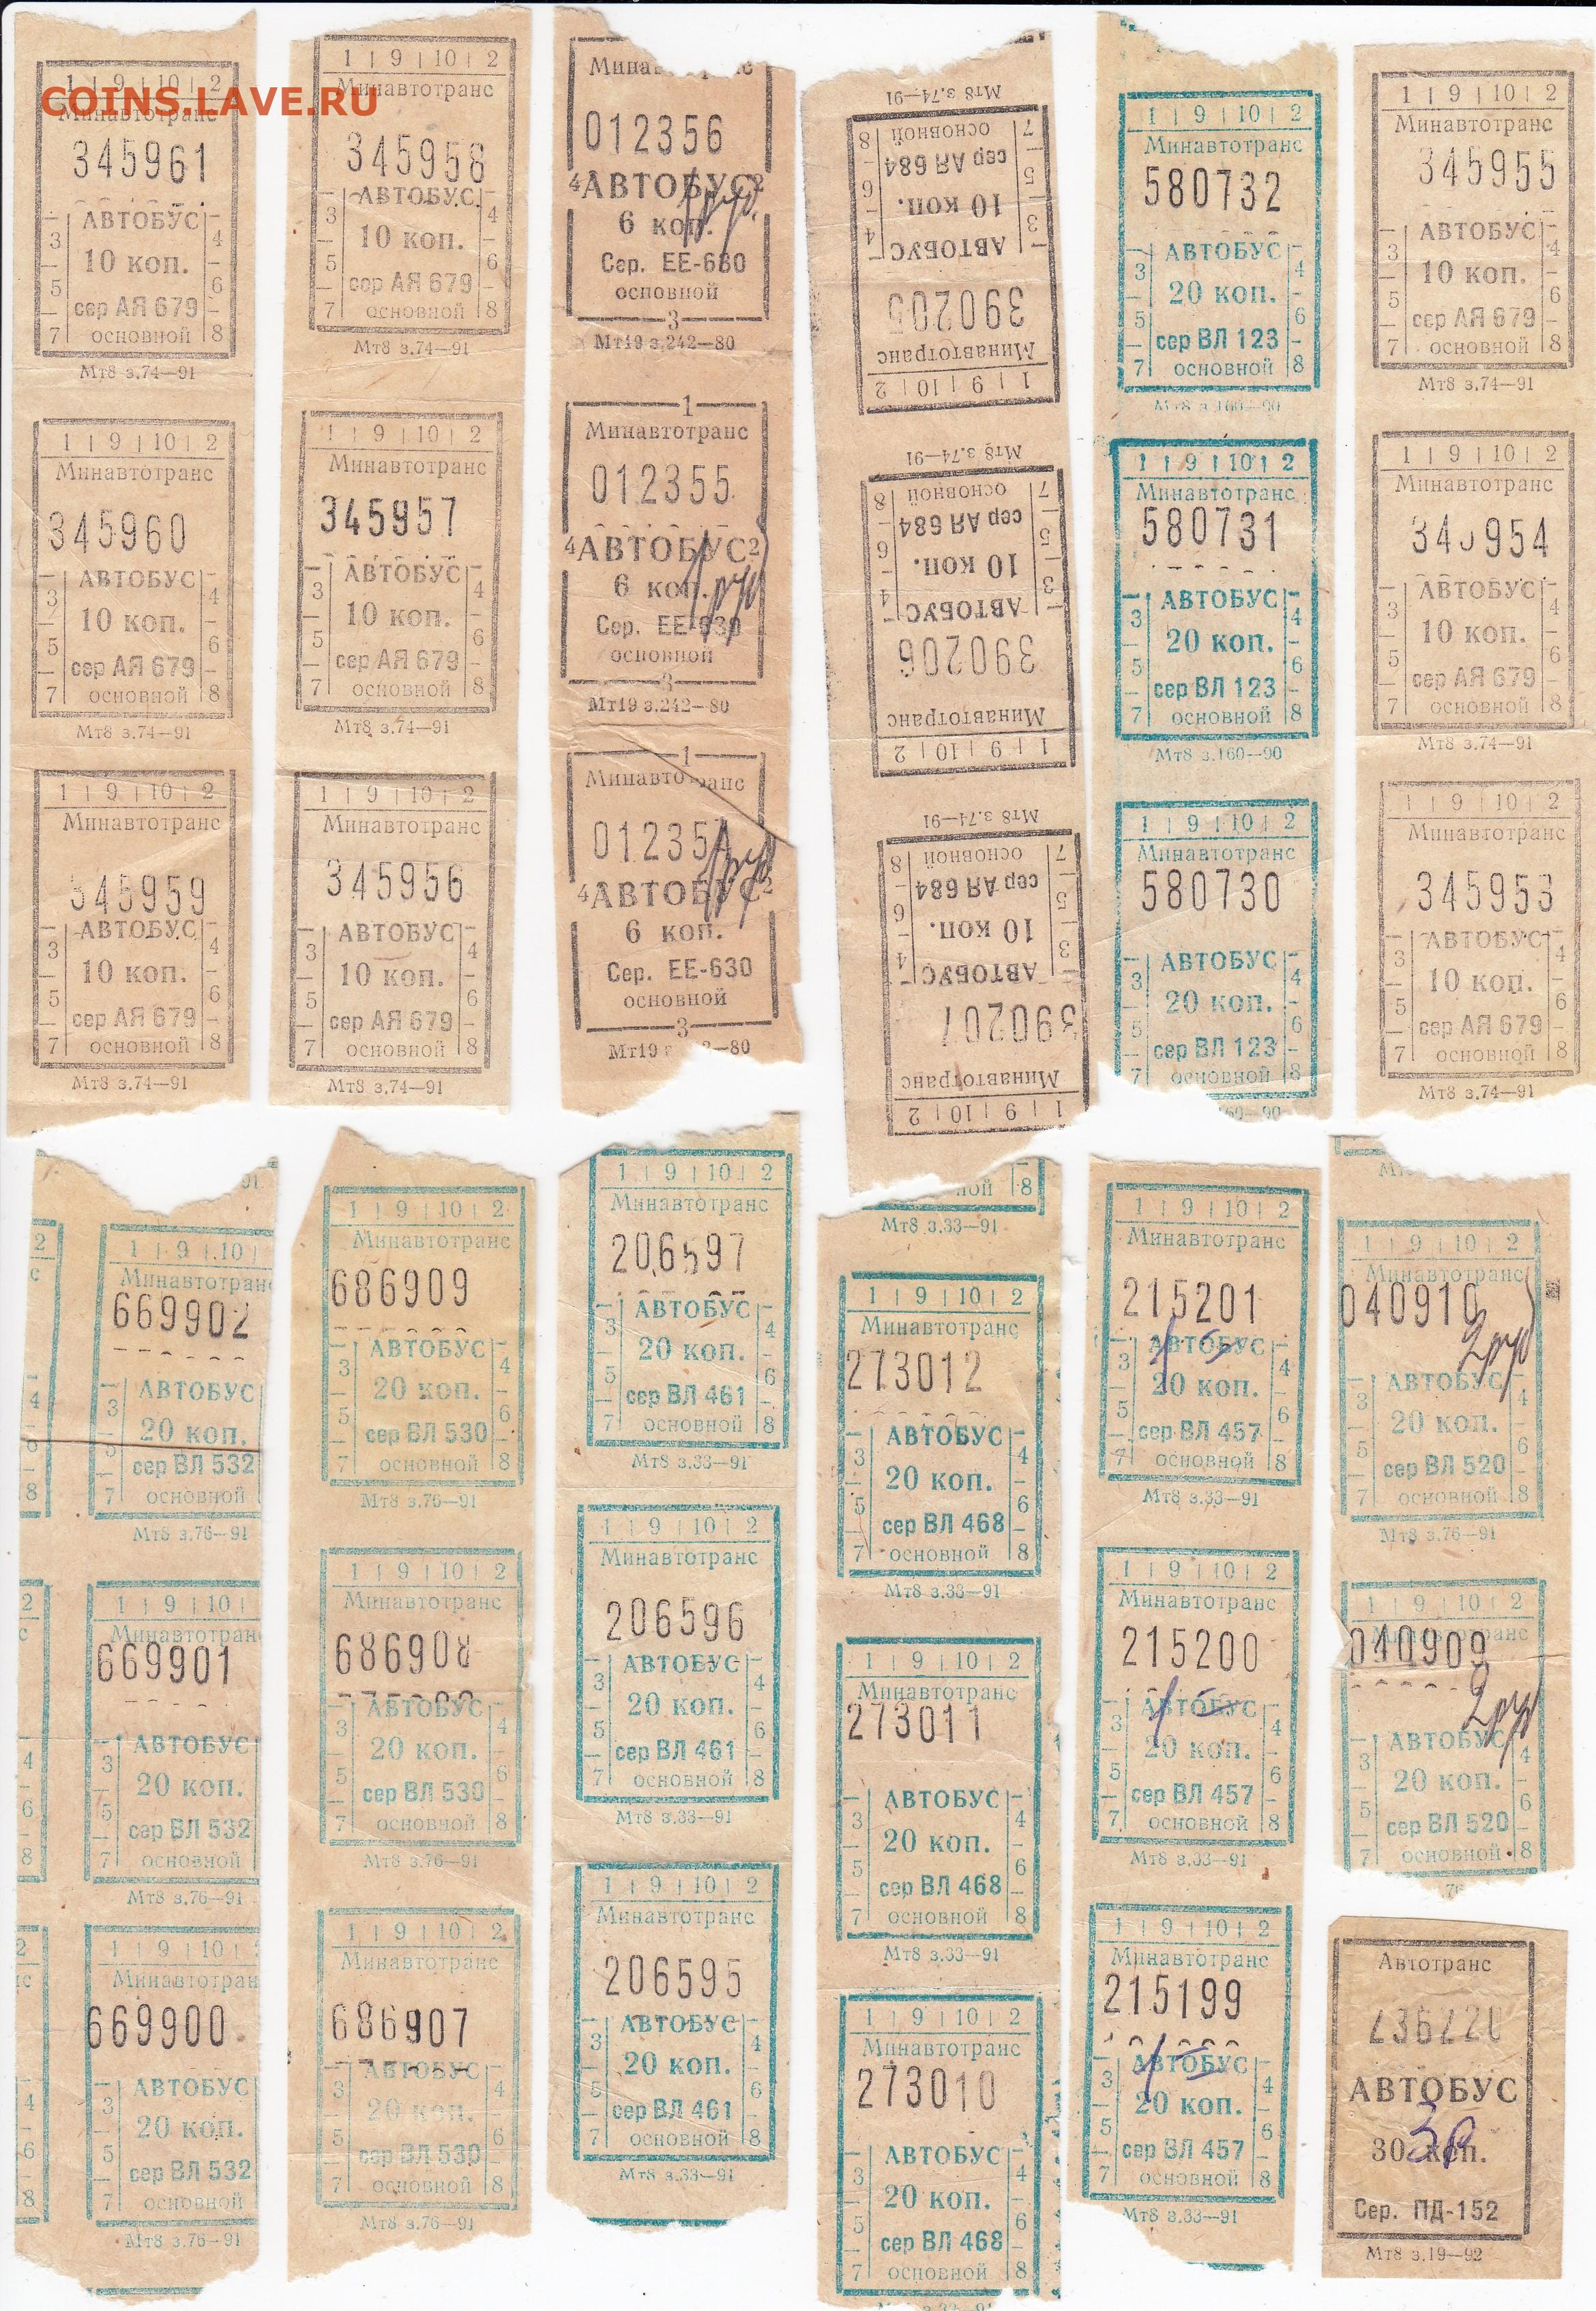 COINS.LAVE.RU
1 9 10 2
Минавтотранс
345961
АВТОБУС
3 4
10 коп.
5 6
сер АЯ 679
7 основной 8
Мт8 з.74—91
1 9 10 2
Минавтотранс
345960
АВТОБУС
3 4
10 коп.
5 6
сер АЯ 679
7 основной 8
Мт8 з.74—91
1 9 10 2
Минавтотранс
345959
АВТОБУС
3 4
10 коп.
5 6
сер АЯ 679
7 основной 8
Мт8 з.74—91
1 9 10 2
Минавтотранс
345958
АВТОБУС
3 4
10 коп.
5 6
сер АЯ 679
7 основной 8
Мт8 з.74—91
1 9 10 2
Минавтотранс
345957
АВТОБУС
3 4
10 коп.
5 6
сер АЯ 679
7 основной 8
Мт8 з.74—91
1 9 10 2
Минавтотранс
345956
АВТОБУС
3 4
10 коп.
5 6
сер АЯ 679
7 основной 8
Мт8 з.74—91
012356
4 АВТОБУС 2
6 коп.
Сер. ЕЕ-630
основной
3
Мт19 з.242—80
1
Минавтотранс
012355
4 АВТОБУС 2
6 коп.
Сер. ЕЕ-630
основной
3
Мт19 з.242—80
1
Минавтотранс
4 АВТОБУС 2
6 коп.
Сер. ЕЕ-630
основной
3
Мт19
1 9 10 2
Минавтотранс
390207
АВТОБУС
3 4
10 коп.
5 6
сер АЯ 684
7 основной 8
Мт8 з.74—91
1 9 10 2
Минавтотранс
390206
АВТОБУС
3 4
10 коп.
5 6
сер АЯ 684
7 основной 8
Мт8 з.74—91
1 9 10 2
Минавтотранс
390205
АВТОБУС
3 4
10 коп.
5 6
сер АЯ 684
7 основной 8
Мт8 з.74—91
1 9 10 2
Минавтотранс
580732
АВТОБУС
3 4
20 коп.
5 6
сер ВЛ 123
7 основной 8
Мт8 з.160—90
1 9 10 2
Минавтотранс
580731
АВТОБУС
3 4
20 коп.
5 6
сер ВЛ 123
7 основной 8
Мт8 з.160—90
1 9 10 2
Минавтотранс
580730
АВТОБУС
3 4
20 коп.
5 6
сер ВЛ 123
7 основной 8
1 9 10 2
Минавтотранс
345955
АВТОБУС
3 4
10 коп.
5 6
сер АЯ 679
7 основной 8
Мт8 з.74—91
1 9 10 2
Минавтотранс
АВТОБУС
3 4
10 коп.
5 6
сер АЯ 679
7 основной 8
Мт8 з.74—91
1 9 10 2
Минавтотранс
345953
АВТОБУС
3 4
10 коп.
5 6
сер АЯ 679
7 основной 8
Мт8 з.74—91
1 9 10
Минавтотран
669902
АВТОБУС
3
20 коп.
5
сер ВЛ 532
7 основной
Мт8 з.76—91
1 9 10
Минавтотран
669901
АВТОБУС
3
20 коп.
5
сер ВЛ 532
7 основной
Мт8 з.76—91
1 9 10
Минавтотран
669900
АВТОБУС
3
20 коп.
5
сер ВЛ 532
7 основной
Мт8 з.76—91
1 9 10 2
Минавтотранс
686909
АВТОБУС
3 4
20 коп.
5 6
сер ВЛ 530
7 основной 8
Мт8 з.76—91
1 9 10 2
Минавтотранс
686908
АВТОБУС
3 4
20 коп.
5 6
сер ВЛ 530
7 основной 8
Мт8 з.76—91
1 9 10 2
Минавтотранс
686907
АВТОБУС
3 4
20 коп.
5 6
сер ВЛ 530
7 основной 8
Мт8 з.76—91
1 9 10 2
Минавтотранс
206597
АВТОБУС
3 4
20 коп.
5 6
сер ВЛ 461
7 основной 8
Мт8 з.33—91
1 9 10 2
Минавтотранс
206596
АВТОБУС
3 4
20 коп.
5 6
сер ВЛ 461
7 основной 8
Мт8 з.33—91
1 9 10 2
Минавтотранс
206595
АВТОБУС
3 4
20 коп.
5 6
сер ВЛ 461
7 основной 8
Мт8 з.33—91
8
Мт8 з.33—91
1 9 10 2
Минавтотранс
273012
АВТОБУС
3 4
20 коп.
5 6
сер ВЛ 468
7 основной 8
Мт8 з.33—91
1 9 10 2
Минавтотранс
273011
АВТОБУС
3 4
20 коп.
5 6
сер ВЛ 468
7 основной 8
Мт8 з.33—91
1 9 10 2
Минавтотранс
273010
АВТОБУС
3 4
20 коп.
5 6
сер ВЛ 468
7 основной 8
1 9 10 2
Минавтотранс
215201
АВТОБУС
3 4
20 коп.
5 6
сер ВЛ 457
7 основной 8
Мт8 з.33—91
1 9 10 2
Минавтотранс
215200
АВТОБУС
3 4
20 коп.
5 6
сер ВЛ 457
7 основной 8
Мт8 з.33—91
1 9 10 2
Минавтотранс
215199
АВТОБУС
3 4
20 коп.
5 6
сер ВЛ 457
7 основной 8
Мт8 з.33—91
1 9 10 2
Минавтотранс
040910
2 руб
АВТОБУС
3 4
20 коп.
5 6
сер ВЛ 520
7 основной 8
Мт8 з.76—91
1 9 10 2
040909
2 руб
АВТОБУС
3 4
20 коп.
5 6
сер ВЛ 520
7 основной 8
Автотранс
АВТОБУС
30 коп.
Сер. ПД-152
Мт8 з.19—92